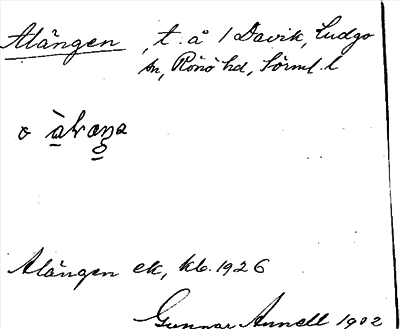 Alängen, t. å 1 Davik, Ludgo
sn, Rönö hd, Sörml. l
Alängen ek, kb. 1926
Gunnar Annell 1932